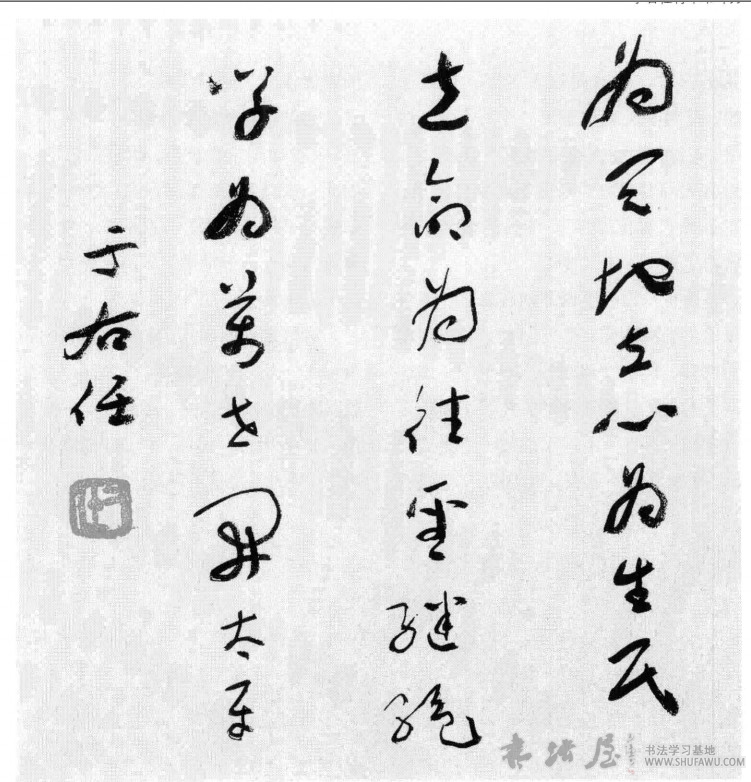 為天地立心為生民
立命為往聖繼絕
學為萬世開太平
于右任
书法屋
书法学习基地
WWW.SHUFAWU.COM